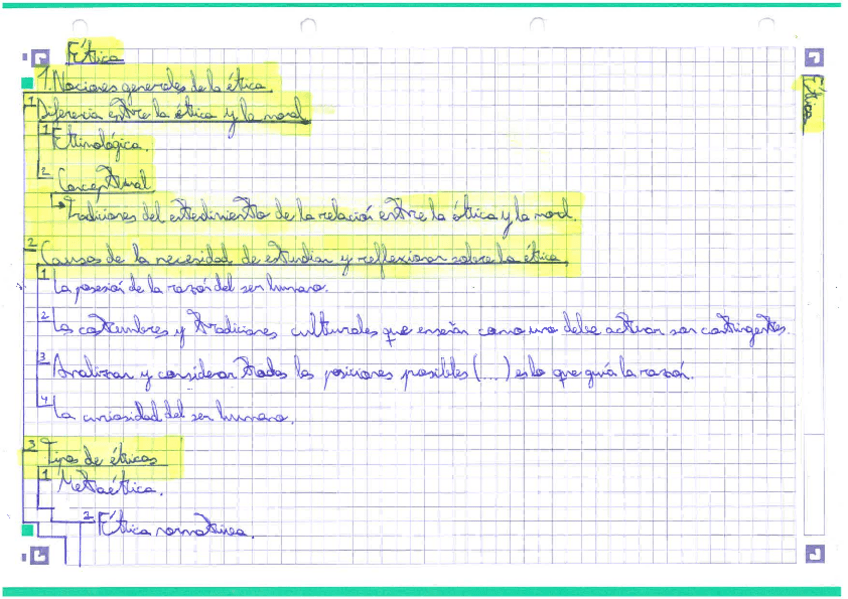 Ética
1. Nociones generales de la ética
1 Diferencia entre la ética y la moral
1 Etimológica.
2 Conceptual
Tradiciones del entendimiento de la relación entre la ética y la moral.
2 Causas de la necesidad de estudiar y reflexionar sobre la ética.
1 La posesión de la razón del ser humano.
2 Las costumbres y tradiciones culturales que enseñan como uno debe actuar son contingentes.
3 Analizar y considerar todas las posiciones posibles (...) es lo que guía la razón.
4 La curiosidad del ser humano.
3 Tipos de éticas
1 Metaética.
2 Ética normativa.
Ética